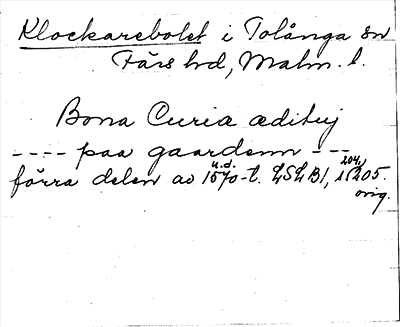 Klockarebolet i Tolånga sn
Färs hd, Malm. l.
Bona Curia æditúj
---- paa gaardenn ---
förra delen av 1570-t. u.d. LSLB1, s 205. 204,
orig.